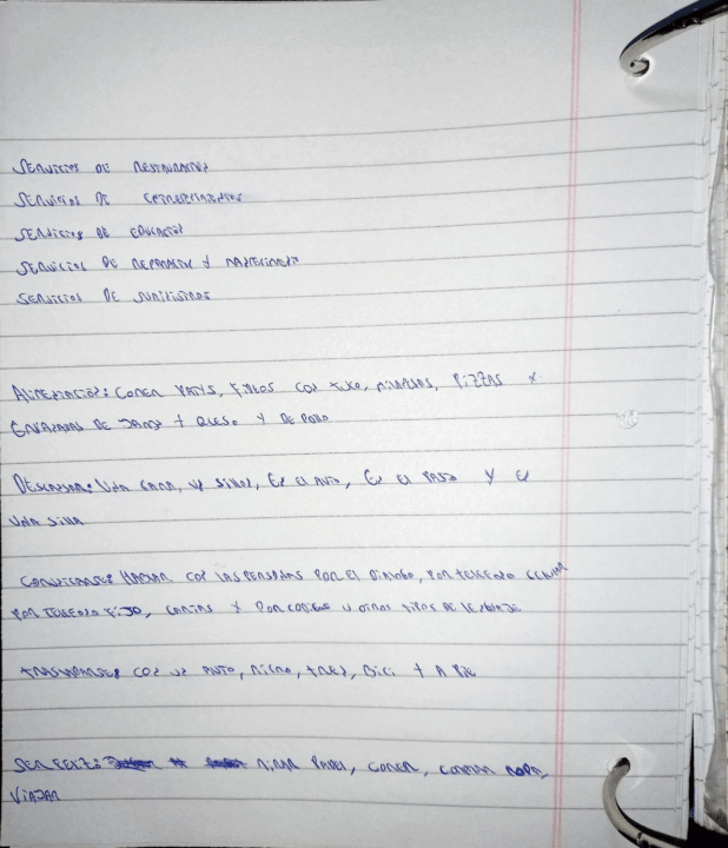 SERVICIOS DE RESTAURACIÓN
SERVICIOS DE
SERVICIOS DE EDUCACIÓN
SERVICIOS DE REPARACION Y MANTENIMIENTO
SERVICIOS DE SUMINISTROS
ALIMENTACION: COMER PATYS, FIDEOS CON TUCO, MILANESAS, PIZZAS Y
EMPANADAS DE JAMON Y QUESO Y DE POLLO
DESCANSAR: UNA CAMA, UN SILLON, EN EL AUTO, EN EL PASTO Y EN
UNA SILLA
COMUNICARSE: HABLAR CON LAS PERSONAS POR EL DIALOGO, POR TELEFONO CELULAR
POR TELEFONO FIJO, CARTAS Y POR CODIGOS U OTROS TIPOS DE LENGUAJE
TRASLADARSE: CON UN AUTO, MICRO, TREN, BICI Y A PIE
SER FELIZ: MIRAR, COMER, COMPRAR ROPA,
VIAJAR